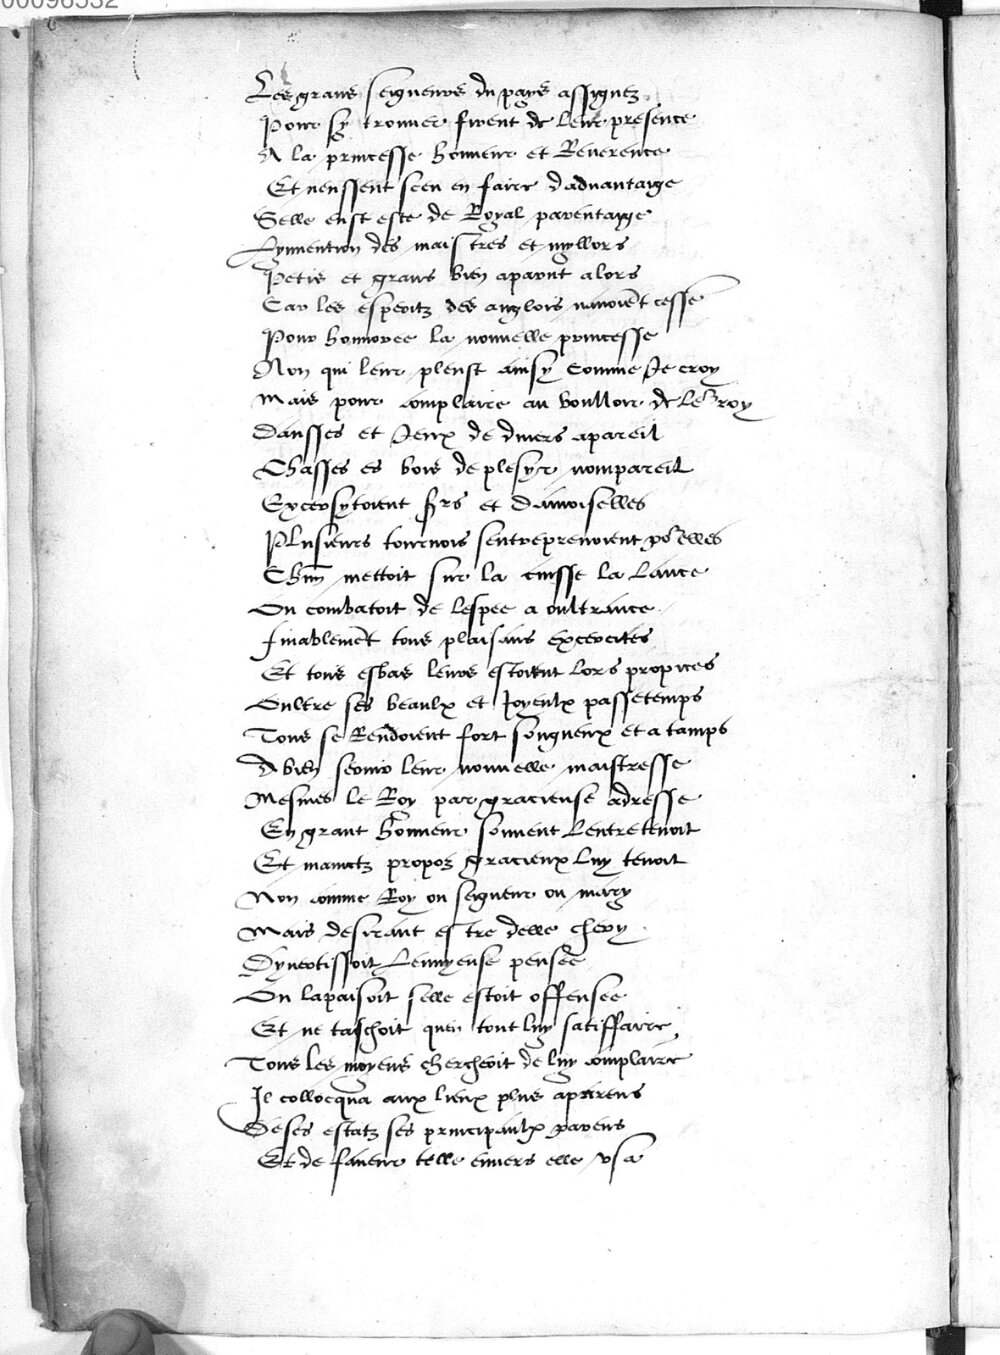 00096532
Les grans seigneurs du pays assignez
Pour sy trouver firent de leur presence
A la princesse honneur et Reverence
Et neussent sceu en faire dadvantaige
Selle eust este de Royal parentaige
Lynvention des maistres et myllors
Petis et grans bien aparut alors
Car les espritz des anglois navoient cesse
Pour honnorer la nouvelle princesse
Non qui leur pleust ainsy comme Je croy
Mais pour complaire au voulloir de le roy
Dansses et Jeux de divers apareil
Chasses es bois de plesyr nompareil
Excersytoient srs et damoiselles
Plusieurs tournois sentreprenoient por elles
Chun mettoit sur la cuisse la lance
Ou combatoit de lespee a oultrance
finablement tous plaisans exercites
Et tous esbas leurs estoient lors propices
Oultre ses beaulx et Joyeulx passetemps
Tous se Rendoient fort songneux et a tamps
A bien servir leur nouvelle maistresse
Mesmes le Roy par gracieuse adresse
En grant honneur souvent lentretenoit
Et maintz propoz gracieux luy tenoit
Non comme Roy ou seigneur ou mary
Mais desirant estre delle chery
Dyvertissoit lennuyeuse pensee
Ou lapaisoit selle estoit offensee
Et ne taschoit quen tout luy satisffaire
Tous les moyens cherchoit de luy complaire
Il collocqua aux lieux plus aparens
De ses estatz ses principaulx parens
Et de faveur telle envers elle usa